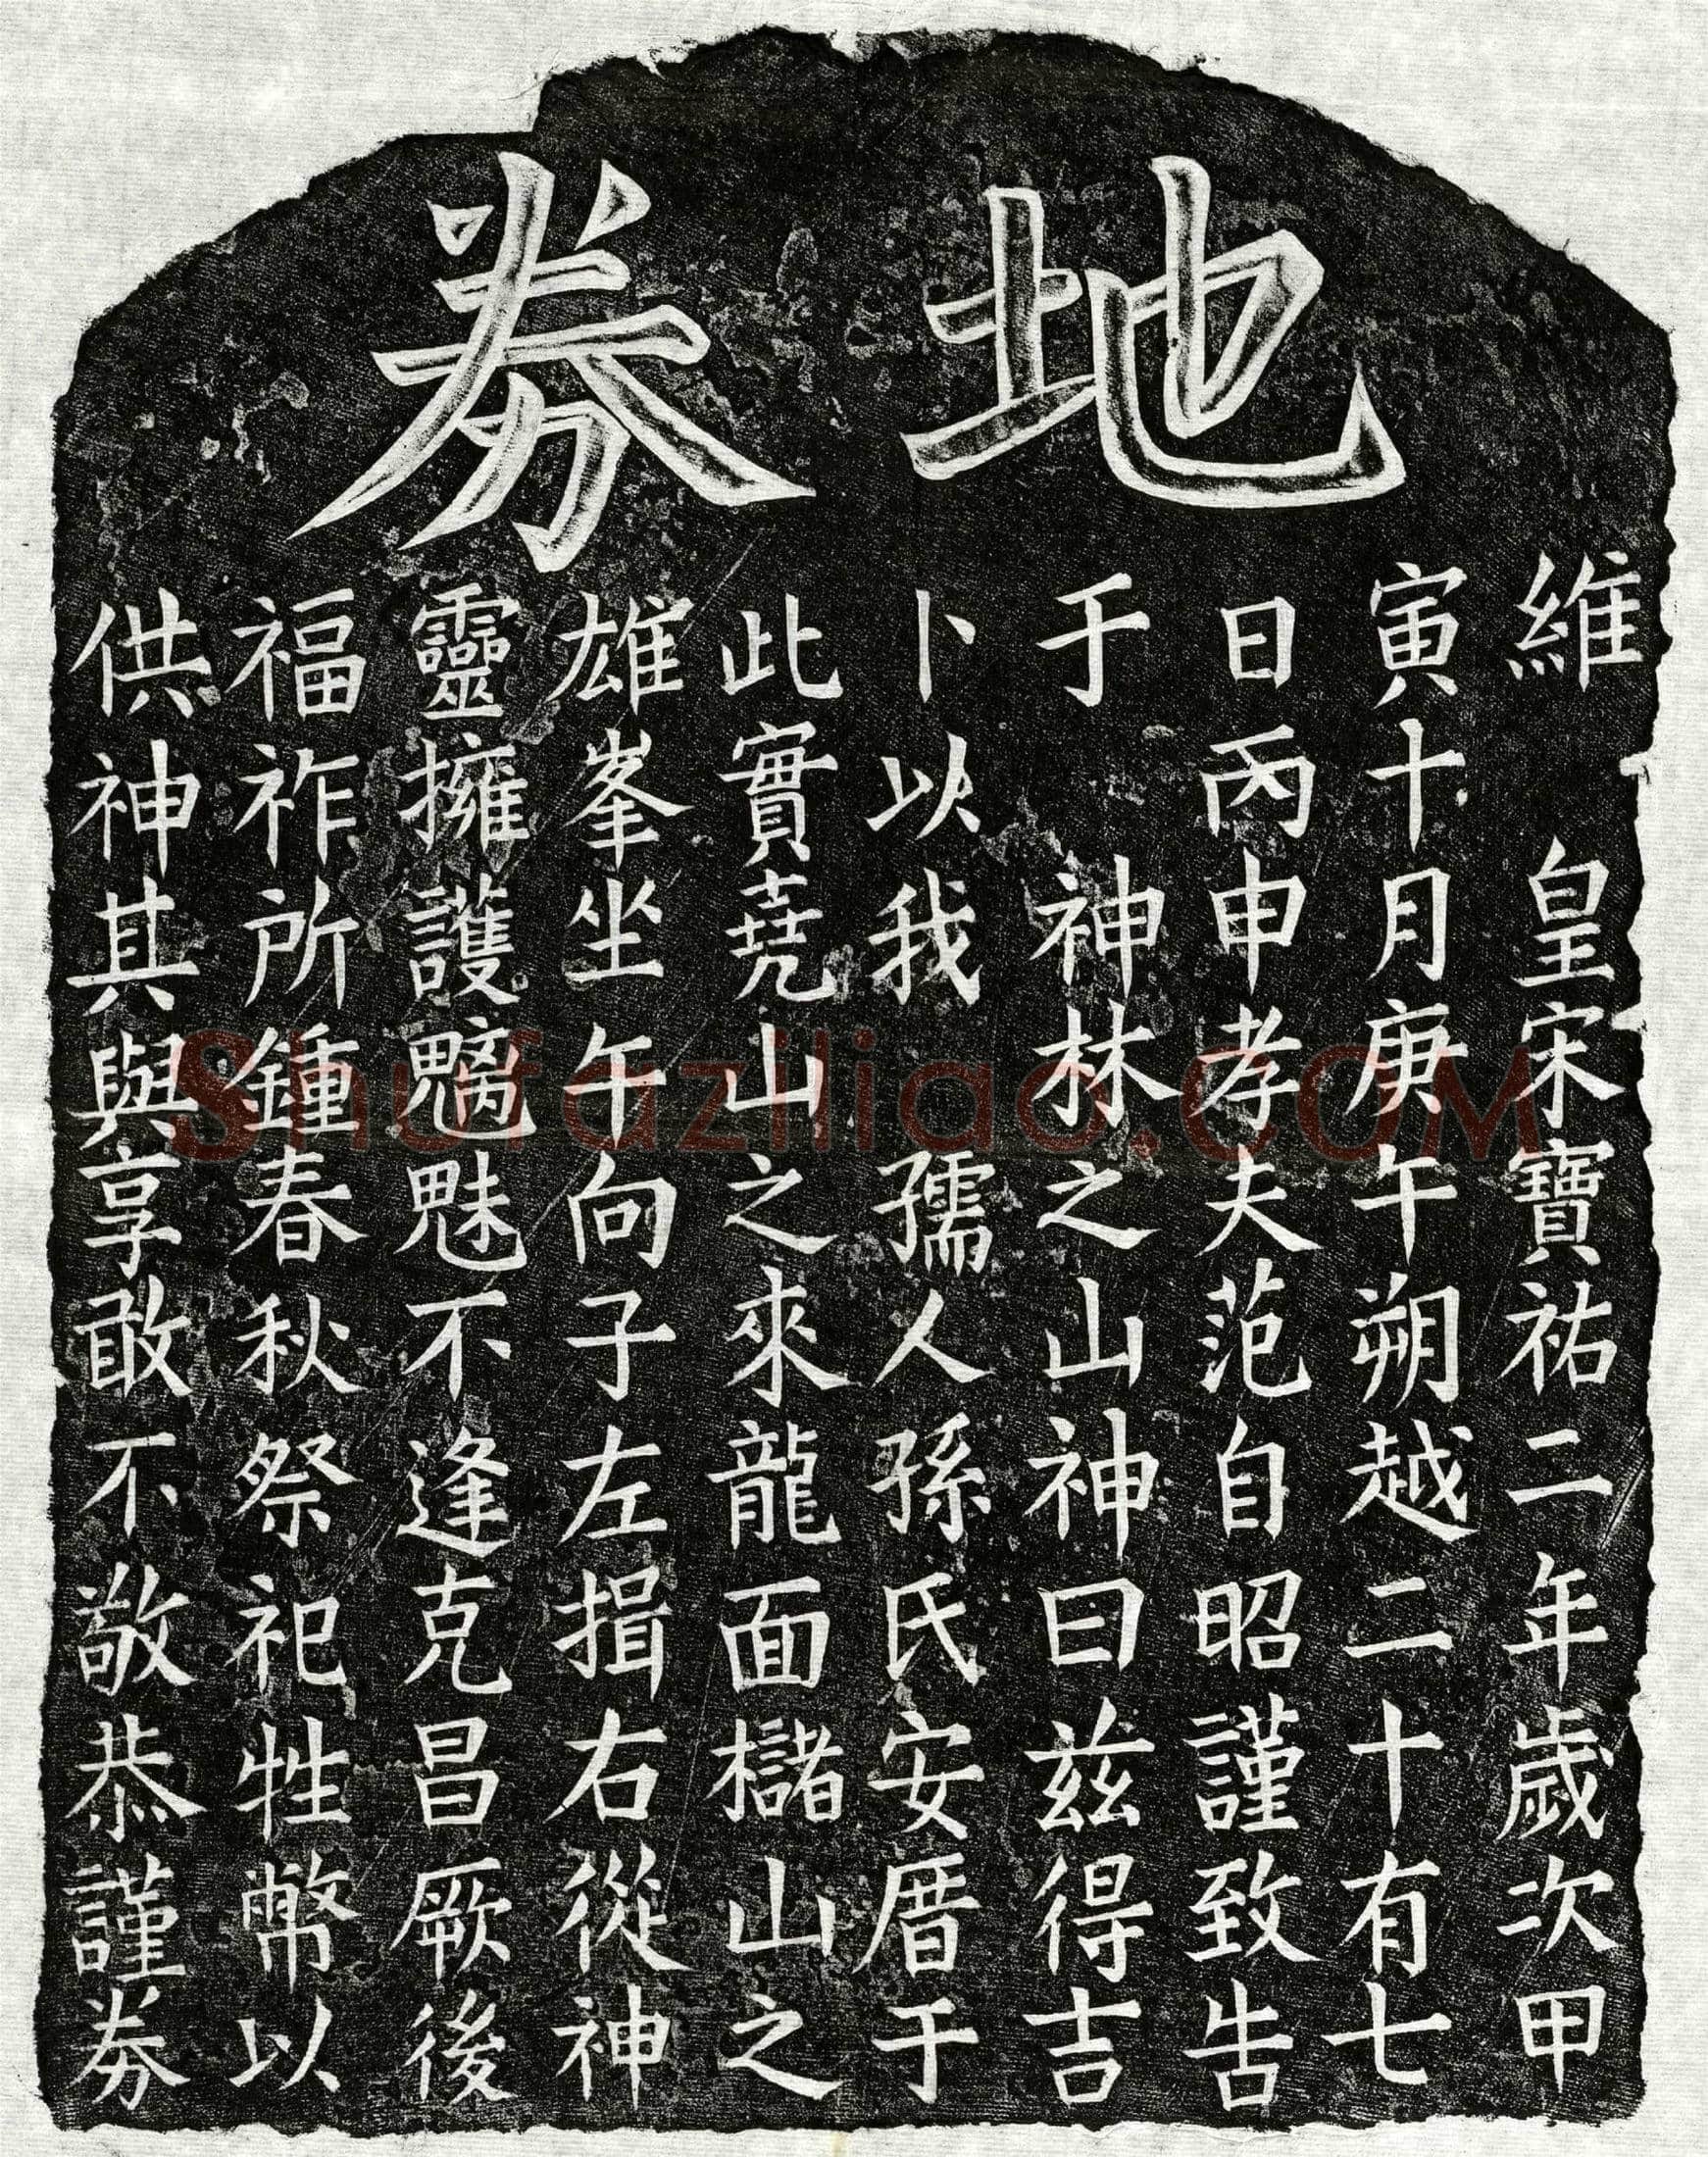 地券
維　皇宋寶祐二年歲次甲
寅十月庚午朔越二十有七
日丙申孝夫范自昭謹致告
于　神林之山神曰兹得吉
卜以我　孺人孫氏安厝于
此實堯山之來龍面櫧山之
雄峯坐午向子左揖右從神
靈擁護魑魅不逢克昌厥後
福祚所鍾春秋祭祀牲幣以
供神其與享敢不敬恭謹券
Shufaziliao.COM